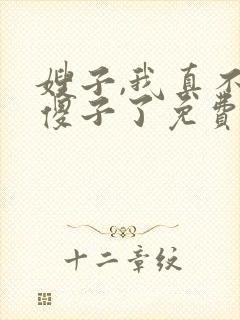 嫂子,我真不
傻子了免费
十二章纹